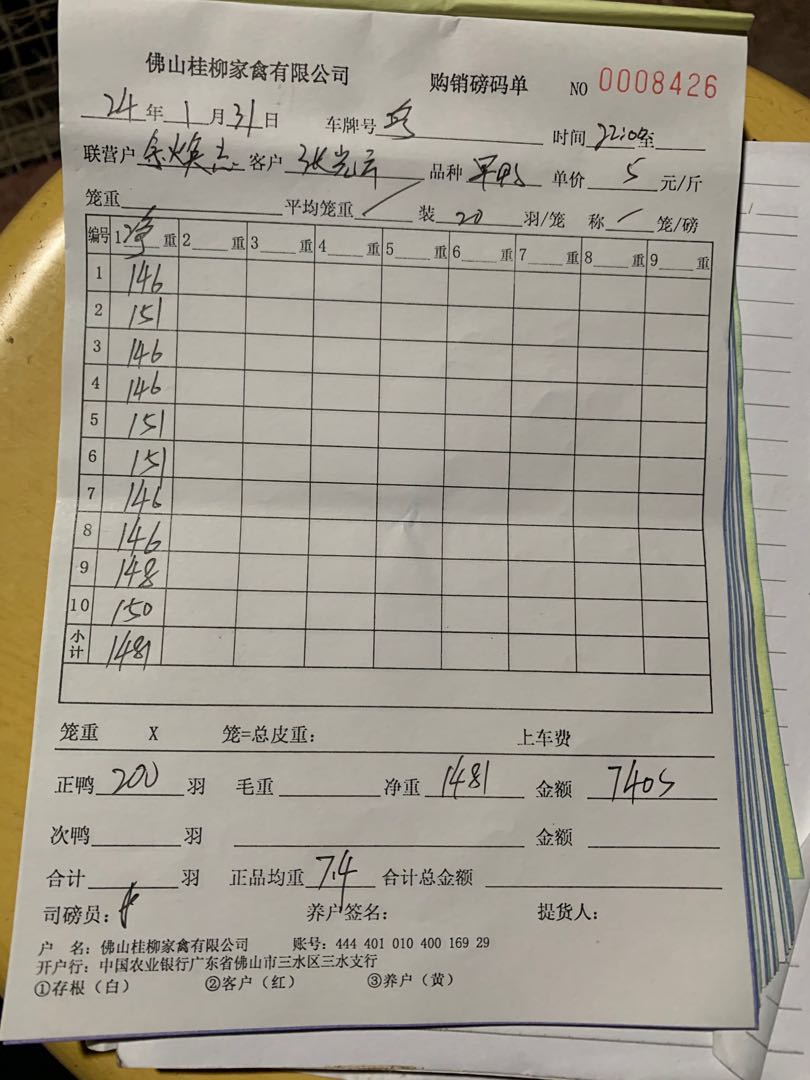 佛山桂柳家禽有限公司 购销磅码单 NO 0008426
24年1月31日 车牌号 时间22:00至
联营户 客户 品种 单价5元/斤
笼重 平均笼重/ 装20羽/笼 称/笼/磅
编号 1净重 2重 3重 4重 5重 6重 7重 8重 9重
1 146
2 151
3 146
4 146
5 151
6 151
7 146
8 146
9 148
10 150
小计 1481
笼重 X 笼=总皮重： 上车费
正鸭200羽 毛重 净重1481 金额7405
次鸭 羽 金额
合计 羽 正品均重7.4 合计总金额
司磅员： 养户签名： 提货人：
户 名：佛山桂柳家禽有限公司 账号：444 401 010 400 169 29
开户行：中国农业银行广东省佛山市三水区三水支行
①存根（白） ②客户（红） ③养户（黄）